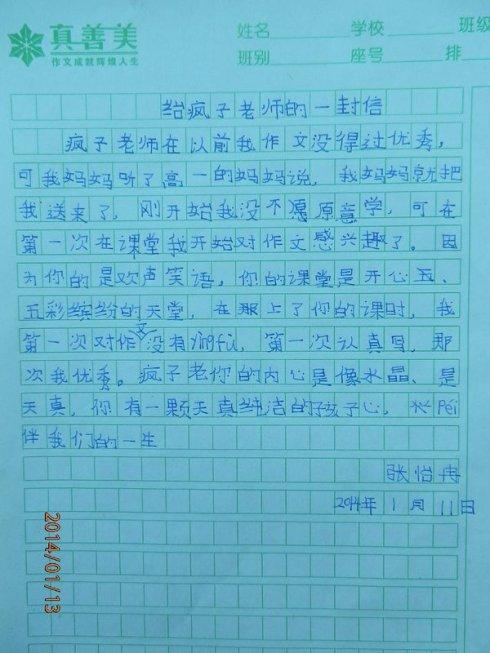 真善美
作文成就辉煌人生
姓名 学校 班级
班别 座号 排
给疯子老师的一封信
疯子老师在以前我作文没得过优秀，
可我妈妈听了高一的妈妈说，我妈妈就把
我送来了，刚开始我没不愿原意学，可在
第一次在课堂我开始对作文感兴趣了。因
为你的是欢声笑语，你的课堂是开心五、
五彩缤纷的天堂，在那上了你的课时，我
第一次对作文没有yingfu，第一次认真写，那
次我优秀。疯子老你的内心是像水晶、是
天真，你有一颗天真纯洁的孩子心，péi
伴我们的一生
张怡冉
2014年1月11日
2014/01/13